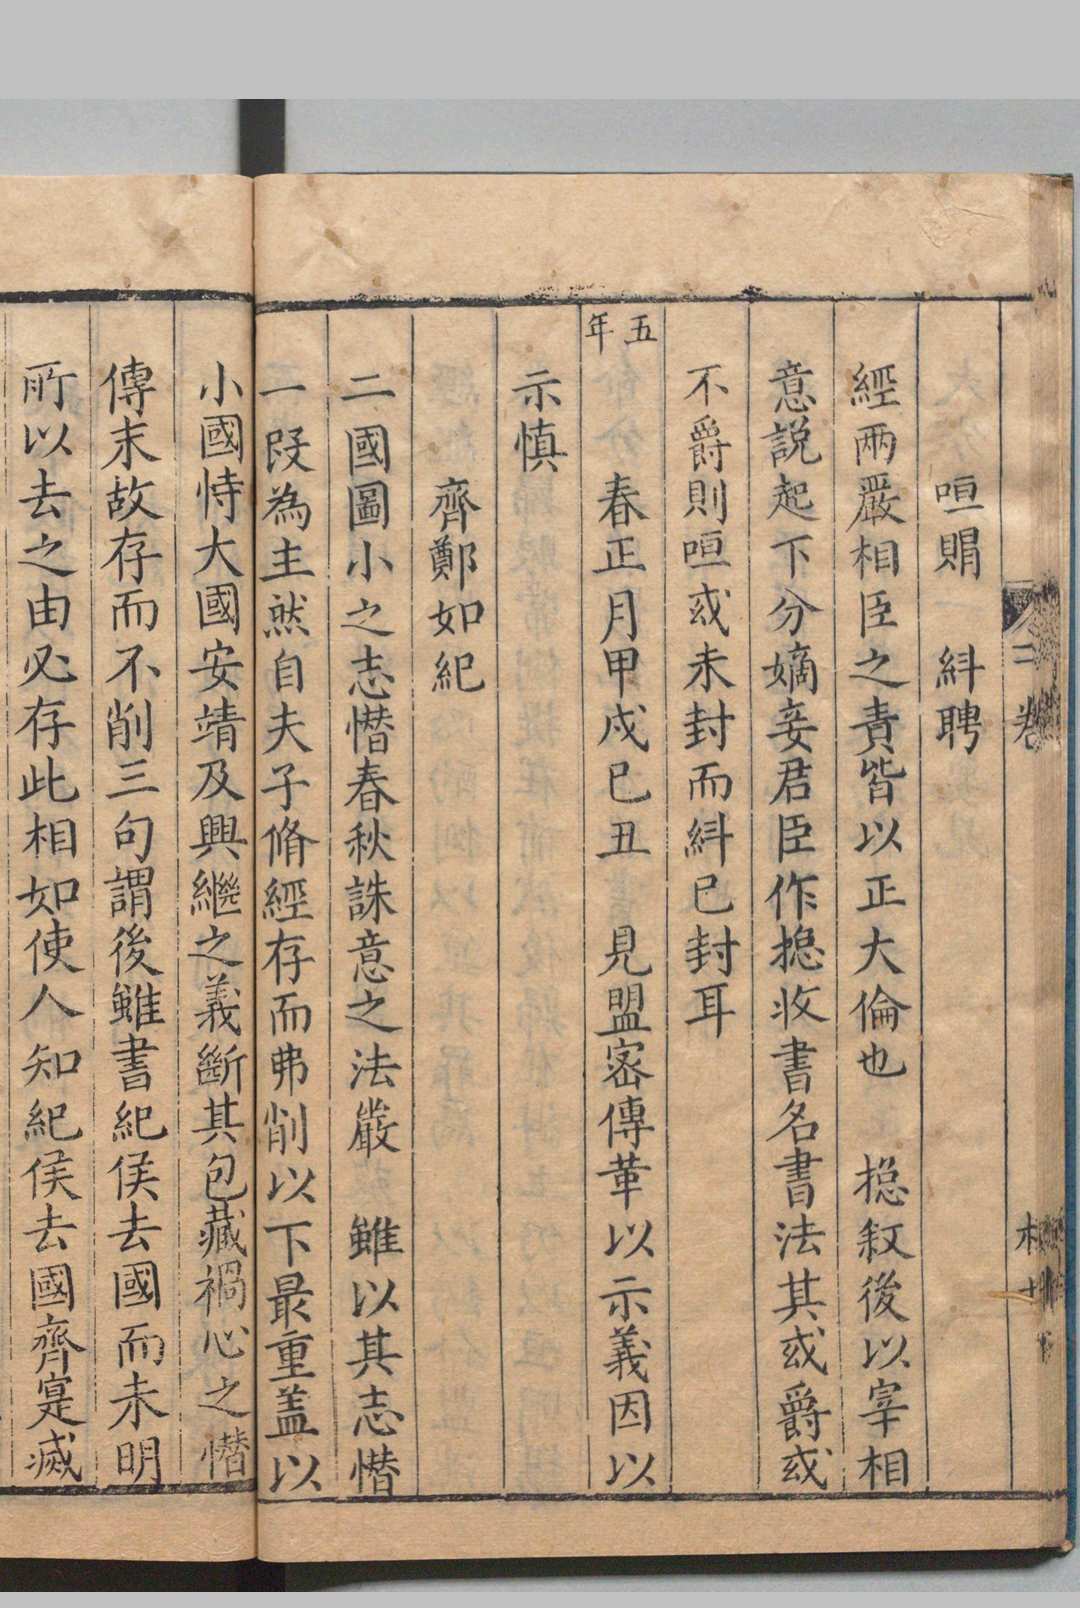 二卷
咺賵 糾聘
經兩嚴相臣之責皆以正大倫也 揔叙後以宰相
意説起下分嫡妾君臣作揔收書名書法其或爵或
不爵則咺或未封而糾已封耳
五年
春正月甲戌已丑 見盟宻傳革以示義因以
示慎
齊鄭如紀
二國圖小之志憯春秋誅意之法嚴 雖以其志憯
一段為主然自夫子脩經存而弗削以下最重盖以
小國恃大國安靖及興繼之義斷其包藏禍心之憯
傳末故存而不削三句謂後雖書紀侯去國而未明
所以去之由必存此相如使人知紀侯去國齊寔滅